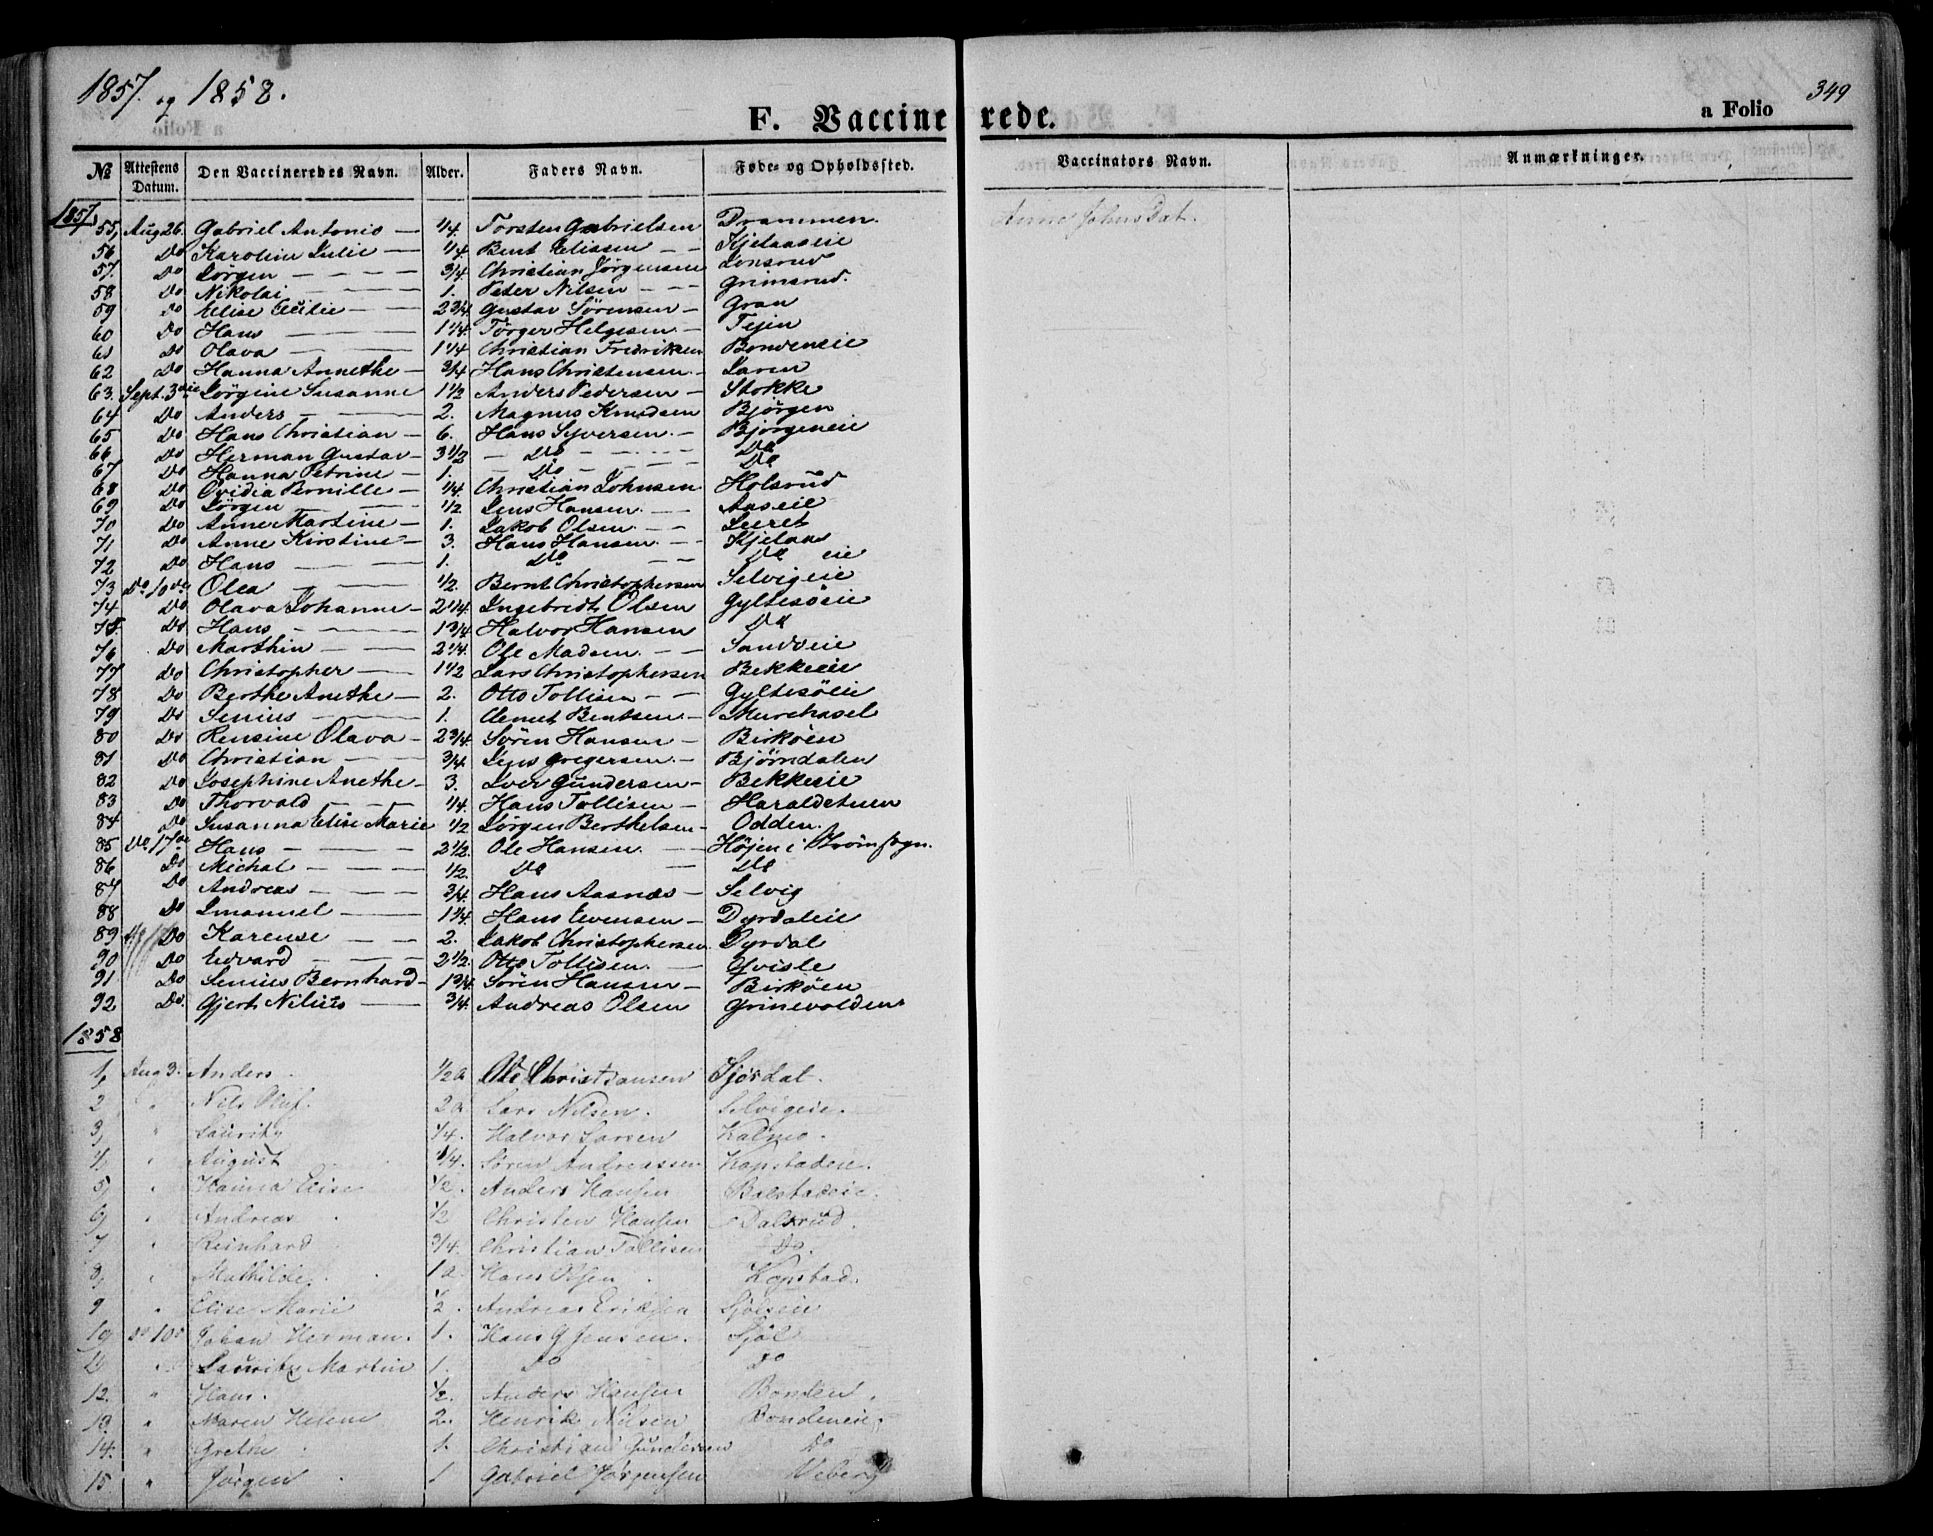 1857. og 1858.
349
F. Vaccinerede.
a Folio
№ Attestens Datum. Den Vaccineredes Navn. Alder. Faders Navn. Føde- og Opholdssted. Vaccinators Navn. Anmærkninger.
1857.
55, Aug 26. Gabriel Antonio — 1/4. Torsten Gabrielsen Drammen. Anne Johns Dat.
56 Do Karoline Julie — 1/4 Bent Eliassen — — Kjelaaseie
57. Do Jørgen — — — — 3/4 Christian Jørgensen Lonsrud
58 Do Nikolai — — — 1. Peter Nilsen — — — Grimsrud.
59 Do Elise Cecilie — — 2 3/4 Gustav Sörensen — Gran
60 Do Hans — — — 1 1/4. Törger Helgesen — Tejen
61 Do Olava — — — 1 1/4 Christian Fredriksen Bondeneie
62 Do Hanna Annethe — 3/4 Hans Christensen — Saren
63. Sept. 3die Jörgine Susanne 1 1/2 Anders Pedersen — Stokke
64 Do Anders — — — 2. Magnus Knudsen Bjørgen
65 Do Hans Christian — 6. Hans Syversen — Bjørgeneie
66 Do Herman Gustav — 3 1/2 — Do — — — Do
67 Do Hanna Petrine — 1. — Do — — — Do
68 Do Ovidia Pernille — 1/4. Christian Johnsen Holsrud
69 Do Jörgen — — — 1/2 Jens Hansen. — — Aaseie
70 Do Anne Martine — 1. Jakob Olsen — — Leeret
71 Do Anne Kirstine — 3. Hans Hansen — — Kjelaas
72 Do Hans — — — 1. Do — — Do eie
73 Do 10de Olea — — — 1/2 Bernt Christophersen Selvigeie
74 Do Olava Johanne — 2 1/4. Ingebrigt Olsen Gyltesöeie
75. Do Hans — — — 1 3/4. Halvor Hansen Do
76 Do Marthin — — — 2 1/4. Ole Madsen — — Sandveie
77 Do Christopher — — 1 1/2 Lars Christophersen Bekkeeie
78 Do Berthe Anethe — 2. Otto Tollisen — — Gyltesöeie
79 Do Senius — — — 1. Clemet Bentsen — Murehasel
80 Do Rensine Olava — 2 3/4. Sören Hansen — Birköen
81 Do Christian — — 3/4 Jens Gregersen — Bjørndalen
82 Do Josephine Anethe — 3. Iver Gundersen — Bekkeeie
83 Do Thorvald — — — 1/4. Hans Tollisen — Haraldstuen
84 Do Susanna Elise Marie 1/2 Jørgen Berthelsen — Odden.
85 Do 17de Hans — — — 2 1/2. Ole Hansen — — Højen i Strömsogn.
86 Do Michal — — — 1/2. Do — Do
87 Do Andreas — — — 3/4. Hans Aasnæs — Selvig
88 Do Imanuel — — — 1 1/4. Hans Evensen — Dyrdaleie
89 Do Karense — — 2. Jakob Christophersen Dyrdal
90 Do Edvard — — — 2 1/2. Otto Tollisen — Qvisle
91 Do Senius Bernhard — 1 3/4. Sören Hansen — Birköen
92 Do. Gjert Nilius — — 3/4. Andreas Olsen Grinevolden
1858
1, Aug 3. Anders. 1/2 a Ole Christiansen Sjørdal.
2 " Nils Oluf. 2 a Lars Nilsen. Selvigeie.
3, " Lauritz 1/4. Halvor Larsen Kalmo.
4, " August 1/4. Søren Andreassen Kopstadeie.
5, " Hanna Elise 1/2. Anders Hansen Balstadeie.
6, " Andreas 1/2 Christen Hansen Dalsrud.
7 " Reinhard 3/4. Christian Tollisen Do.
8, " Mathilde. 1 a. Hans Olsen. Kopstad.
9 " Elise Marie 1/2. Andreas Eriksen Sjøleie
10 Do 10de Johan Herman. 1. Hans G Jensen. Sjøl
11 " Lauritz Martin 1. Do Do
12. " Hans. 1/2. Anders Hansen Bonden.
13. " Maren Helene 2. Henrik Nilsen Bondeneie
14. " Grethe 1. Christian Gundersen Do
15 " Jørgen 1 Gabriel Jørgensen Neberg